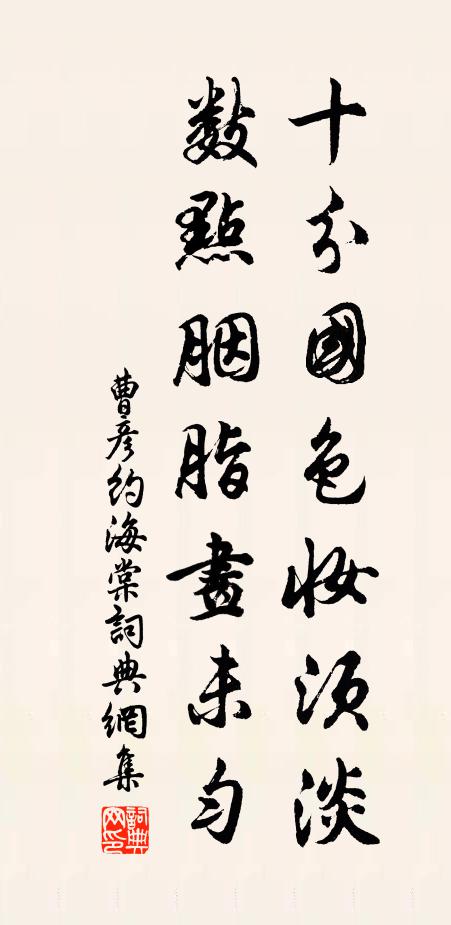 十分國色妝須淡
數點胭脂畫未勻
曹彥約海棠詞典網集
詞典網印